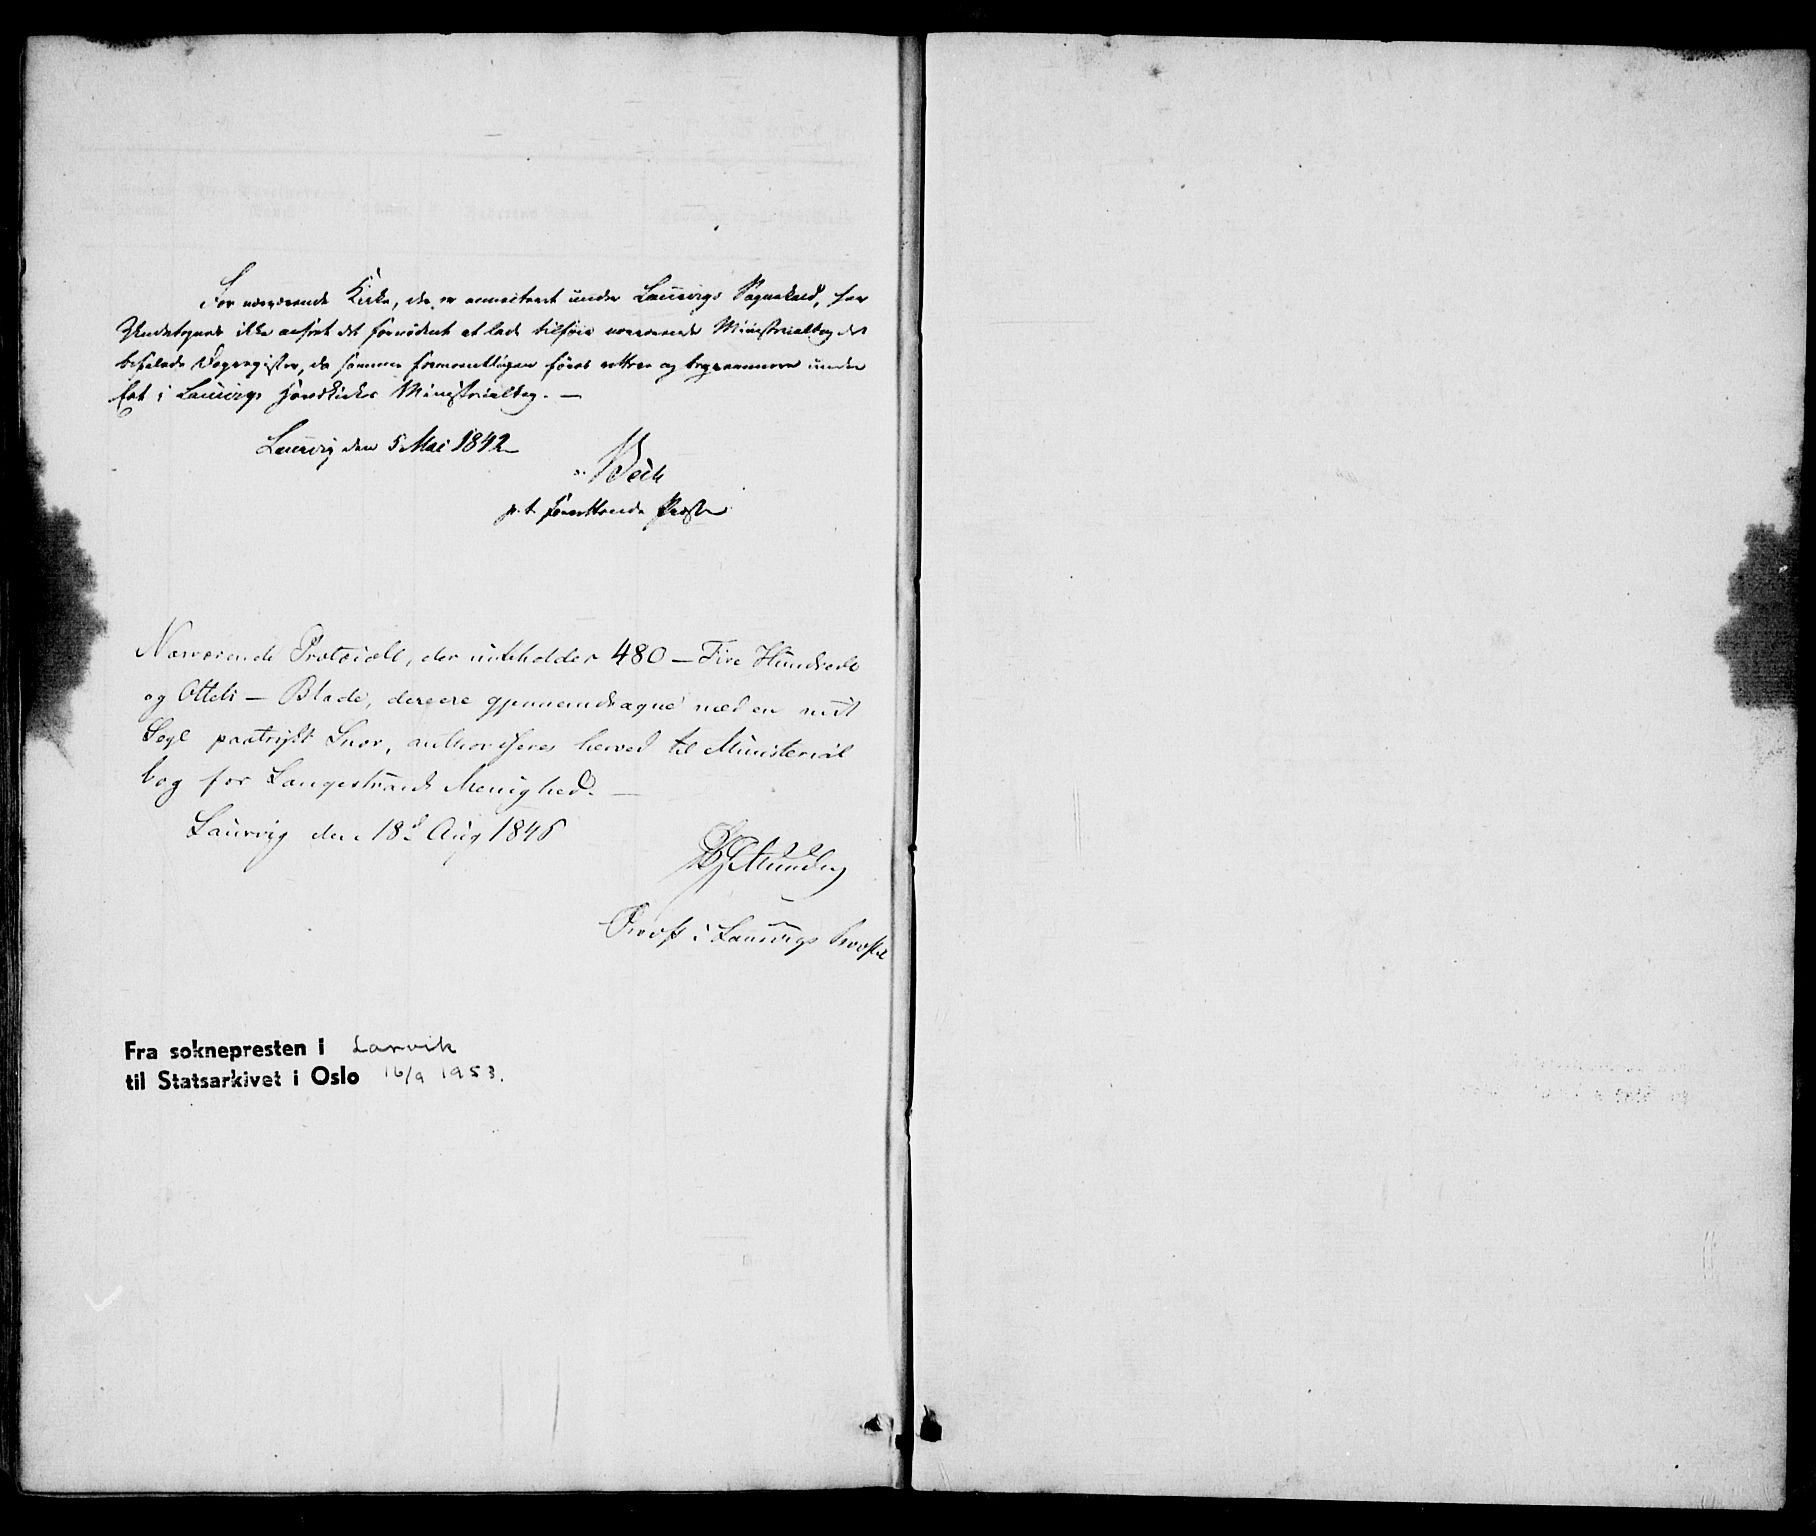 For nærværende Kirke, der er annecteret under Laurvigs Sognekald, har
Undertegnede ikke anseet det fornødent at lade tilføie nærværende Ministerialbog det
befalede Dagregister, da samme formeentligen føres rettere og begvemmere under
Eet i Laurvigs Hovedkirkes Ministerialbog. —
Laurvig den 5 Mai 1842
Bech
p. t. forrettende Provst
Nærværende Protocoll, der indeholder 480 — Fire Hundrede
og Otteti — Blade, der ere gjennemdragne med en mit
Segl paatrykt Snor, authoriseres herved til Ministerial
bog for Langestrands Menighed. —
Laurvig den 18d Aug 1845
Munder
Provst i Laurvigs Provstie
Fra soknepresten i Larvik
til Statsarkivet i Oslo 16/9 1953.